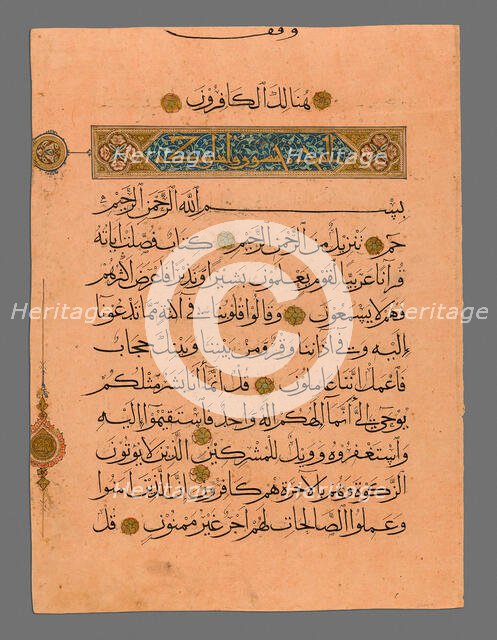 وقف
هُنَالِكَ ٱلْكَافِرُونَ
بِسْمِ ٱللَّهِ ٱلرَّحْمَٰنِ ٱلرَّحِيمِ
حم تَنْزِيلٌ مِنَ ٱلرَّحْمَٰنِ ٱلرَّحِيمِ كِتَابٌ فُصِّلَتْ آيَاتُهُ
قُرْآنًا عَرَبِيًّا لِقَوْمٍ يَعْلَمُونَ بَشِيرًا وَنَذِيرًا فَأَعْرَضَ أَكْثَرُهُمْ
فَهُمْ لَا يَسْمَعُونَ وَقَالُوا قُلُوبُنَا فِي أَكِنَّةٍ مِمَّا تَدْعُونَا
إِلَيْهِ وَفِي آذَانِنَا وَقْرٌ وَمِنْ بَيْنِنَا وَبَيْنِكَ حِجَابٌ
فَٱعْمَلْ إِنَّنَا عَامِلُونَ قُلْ إِنَّمَا أَنَا بَشَرٌ مِثْلُكُمْ
يُوحَىٰ إِلَيَّ أَنَّمَا إِلَٰهُكُمْ إِلَٰهٌ وَاحِدٌ فَٱسْتَقِيمُوا إِلَيْهِ
وَٱسْتَغْفِرُوهُ وَوَيْلٌ لِلْمُشْرِكِينَ ٱلَّذِينَ لَا يُؤْتُونَ
ٱلزَّكَوٰةَ وَهُمْ بِٱلْآخِرَةِ هُمْ كَافِرُونَ إِنَّ ٱلَّذِينَ آمَنُوا
وَعَمِلُوا ٱلصَّالِحَاتِ لَهُمْ أَجْرٌ غَيْرُ مَمْنُونٍ قُلْ
Heritage Heritage
Heritage Heritage Heritage
Heritage Heritage
©